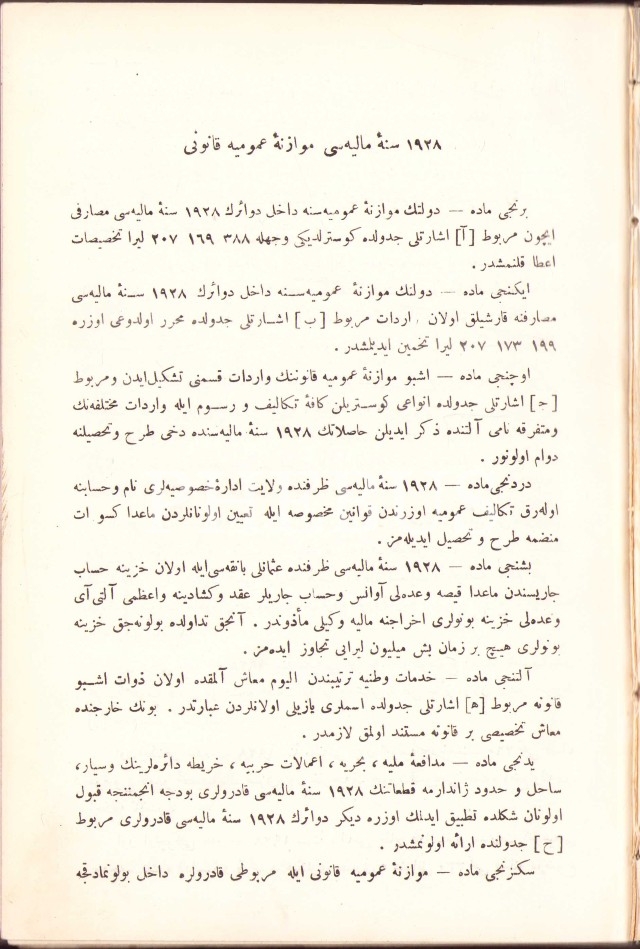 ١٩٢٨ سنهٔ مالیه‌سی موازنهٔ عمومیه قانونی
برنجی ماده — دولتك موازنهٔ عمومیه‌سنه داخل دوائرك ١٩٢٨ سنهٔ مالیه‌سی مصارفی
ایچون مربوط [آ] اشارتلی جدولده كوسترلدیكی وجهله ٣٨٨ ١٦٩ ٢٠٧ لیرا تخصیصات
اعطا قلنمشدر .
ایكنجی ماده — دولتك موازنهٔ عمومیه‌سنه داخل دوائرك ١٩٢٨ سنهٔ مالیه‌سی
مصارفنه قارشیلق اولان واردات مربوط [ب] اشارتلی جدولده محرر اولدوغی اوزره
١٩٩ ١٧٣ ٢٠٧ لیرا تخمین ایدیلمشدر .
اوچنجی ماده — اشبو موازنهٔ عمومیه قانوننك واردات قسمنی تشكیل‌ایدن ومربوط
[ج] اشارتلی جدولده انواعی كوستریلن كافهٔ تكالیف و رسوم ایله واردات مختلفه‌نك
ومتفرقه نامی آلتنده ذكر ایدیلن حاصلاتك ١٩٢٨ سنهٔ مالیه‌سنده دخی طرح وتحصیلنه
دوام اولونور .
دردنجی‌ماده — ١٩٢٨ سنهٔ مالیه‌سی ظرفنده ولایت ادارهٔ‌خصوصیه‌لری نام وحسابنه
اوله‌رق تكالیف عمومیه اوزرندن قوانین مخصوصه ایله تعیین اولونانلردن ماعدا كسو ات
منضمه طرح و تحصیل ایدیله‌مز .
بشنجی ماده — ١٩٢٨ سنهٔ مالیه‌سی ظرفنده عثمانلی بانقه‌سی‌ایله اولان خزینه حساب
جاریسندن ماعدا قیصه وعده‌لی آوانس وحساب جاریلر عقد وكشادینه واعظمی آلتی‌آی
وعده‌لی خزینه بونولری اخراجنه مالیه وكیلی مأذوندر . آنجق تداولده بولونه‌جق خزینه
بونولری هیچ بر زمان بش میلیون لیرایی تجاوز ایده‌مز .
آلتنجی ماده — خدمات وطنیه ترتیبندن الیوم معاش آلمقده اولان ذوات اشبو
قانونه مربوط [ه] اشارتلی جدولده اسملری یازیلی اولانلردن عبارتدر . بونك خارجنده
معاش تخصیصی بر قانونه مستند اولمق لازمدر .
یدنجی ماده — مدافعهٔ ملیه ، بحریه ، اعمالات حربیه ، خریطه دائره‌لرینك وسیار،
ساحل و حدود ژاندارمه قطعاتنك ١٩٢٨ سنهٔ مالیه‌سی قادرولری بودجه انجمننجه قبول
اولونان شكلده تطبیق ایدلك اوزره دیكر دوائرك ١٩٢٨ سنهٔ مالیه‌سی قادرولری مربوط
[ح] جدولنده ارائه اولونمشدر .
سكزنجی ماده — موازنهٔ عمومیه قانونی ایله مربوطی قادرولره داخل بولونمادقجه